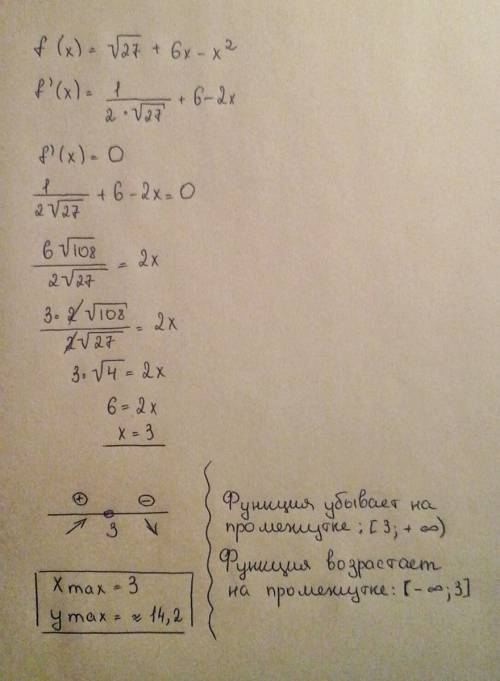 f(x) = √27 + 6x - x²
f'(x) = 1/(2·√27) + 6 - 2x
f'(x) = 0
1/(2√27) + 6 - 2x = 0
6√108/(2√27) = 2x
3·2√108/(2√27) = 2x
3·√4 = 2x
6 = 2x
x = 3
+ -
3
Xmax = 3
Ymax = ≈ 14,2
Функция убывает на
промежутке: [3; +∞)
Функция возрастает
на промежутке: [-∞; 3]